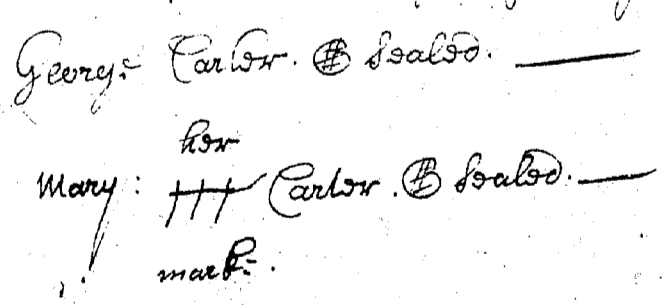 George Carter. Sealed.
her
Mary: Carter. Sealed.
marke.